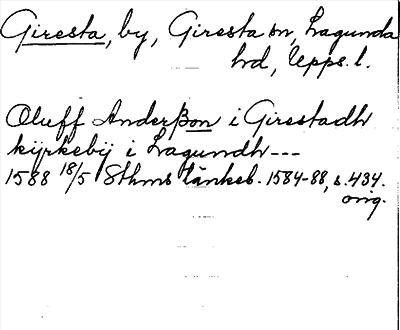 Giresta, by, Giresta sn, Lagunda
hd, Upps. l.
Oluff Anderßon i Girestadh
kyrkebÿ i Lagundh---
1588 18/5 Sthms tänkeb. 1584-88, s. 434.
orig.